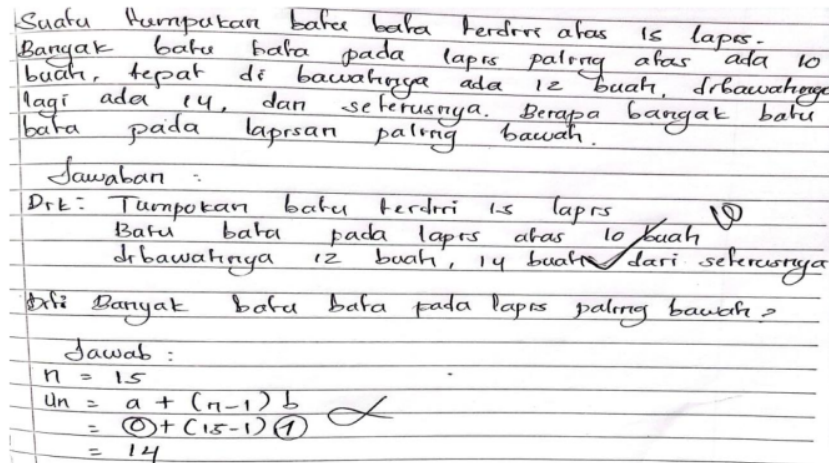 Suatu tumpukan batu bata terdiri atas 15 lapis.
Banyak batu bata pada lapis paling atas ada 10
buah, tepat di bawahnya ada 12 buah, dibawahnya
lagi ada 14, dan seterusnya. Berapa banyak batu
bata pada lapisan paling bawah.
Jawaban :
Dik: Tumpokan batu terdiri 15 lapis
Batu bata pada lapis atas 10 buah
dibawahnya 12 buah, 14 buah dari seterusnya
Dit: Banyak batu bata pada lapis paling bawah?
Jawab :
n = 15
Un = a + (n-1) b
= 0 + (15-1) 1
= 14